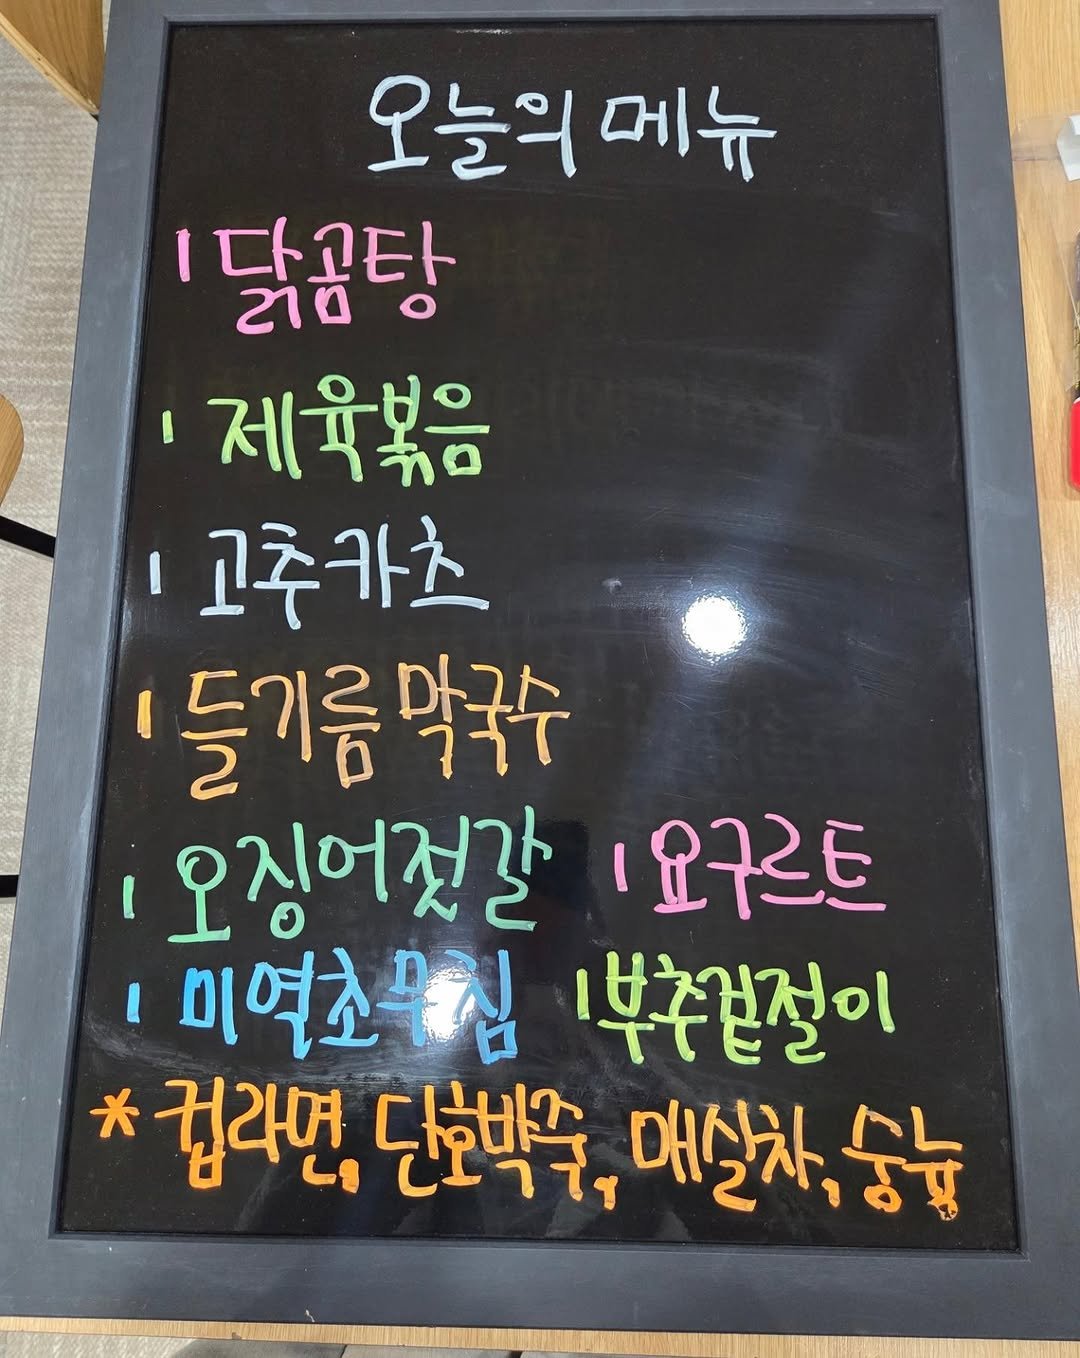 오늘의 메뉴
ㅣ 닭곰탕
ㅣ 제육볶음
ㅣ 고추카츠
ㅣ 들기름 막국수
ㅣ 오징어젓갈 ㅣ 요구르트
ㅣ 미역초무침 ㅣ 부추겉절이
* 컵라면, 단호박죽, 매실차, 숭늉